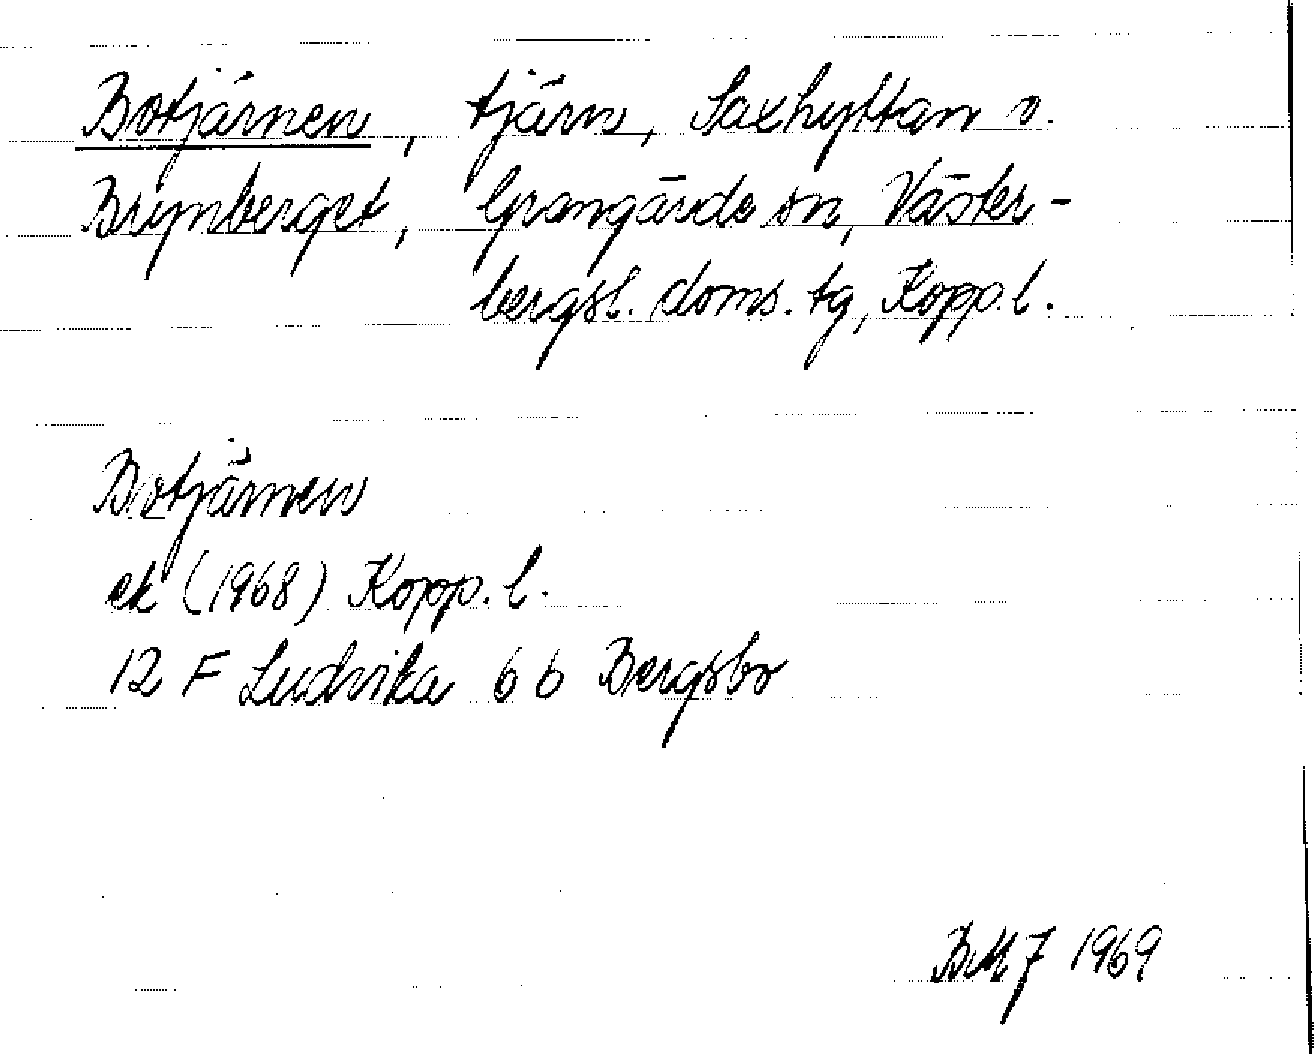 Botjärnen, tjärn, Saxhyttan o.
Brynberget, Grangärde sn, Väster-
bergsl. doms. tg, Kopp. l.
Botjärnen
ek (1968) Kopp. l.
12 F Ludvika 6 b Bergsbo
BMJ 1969